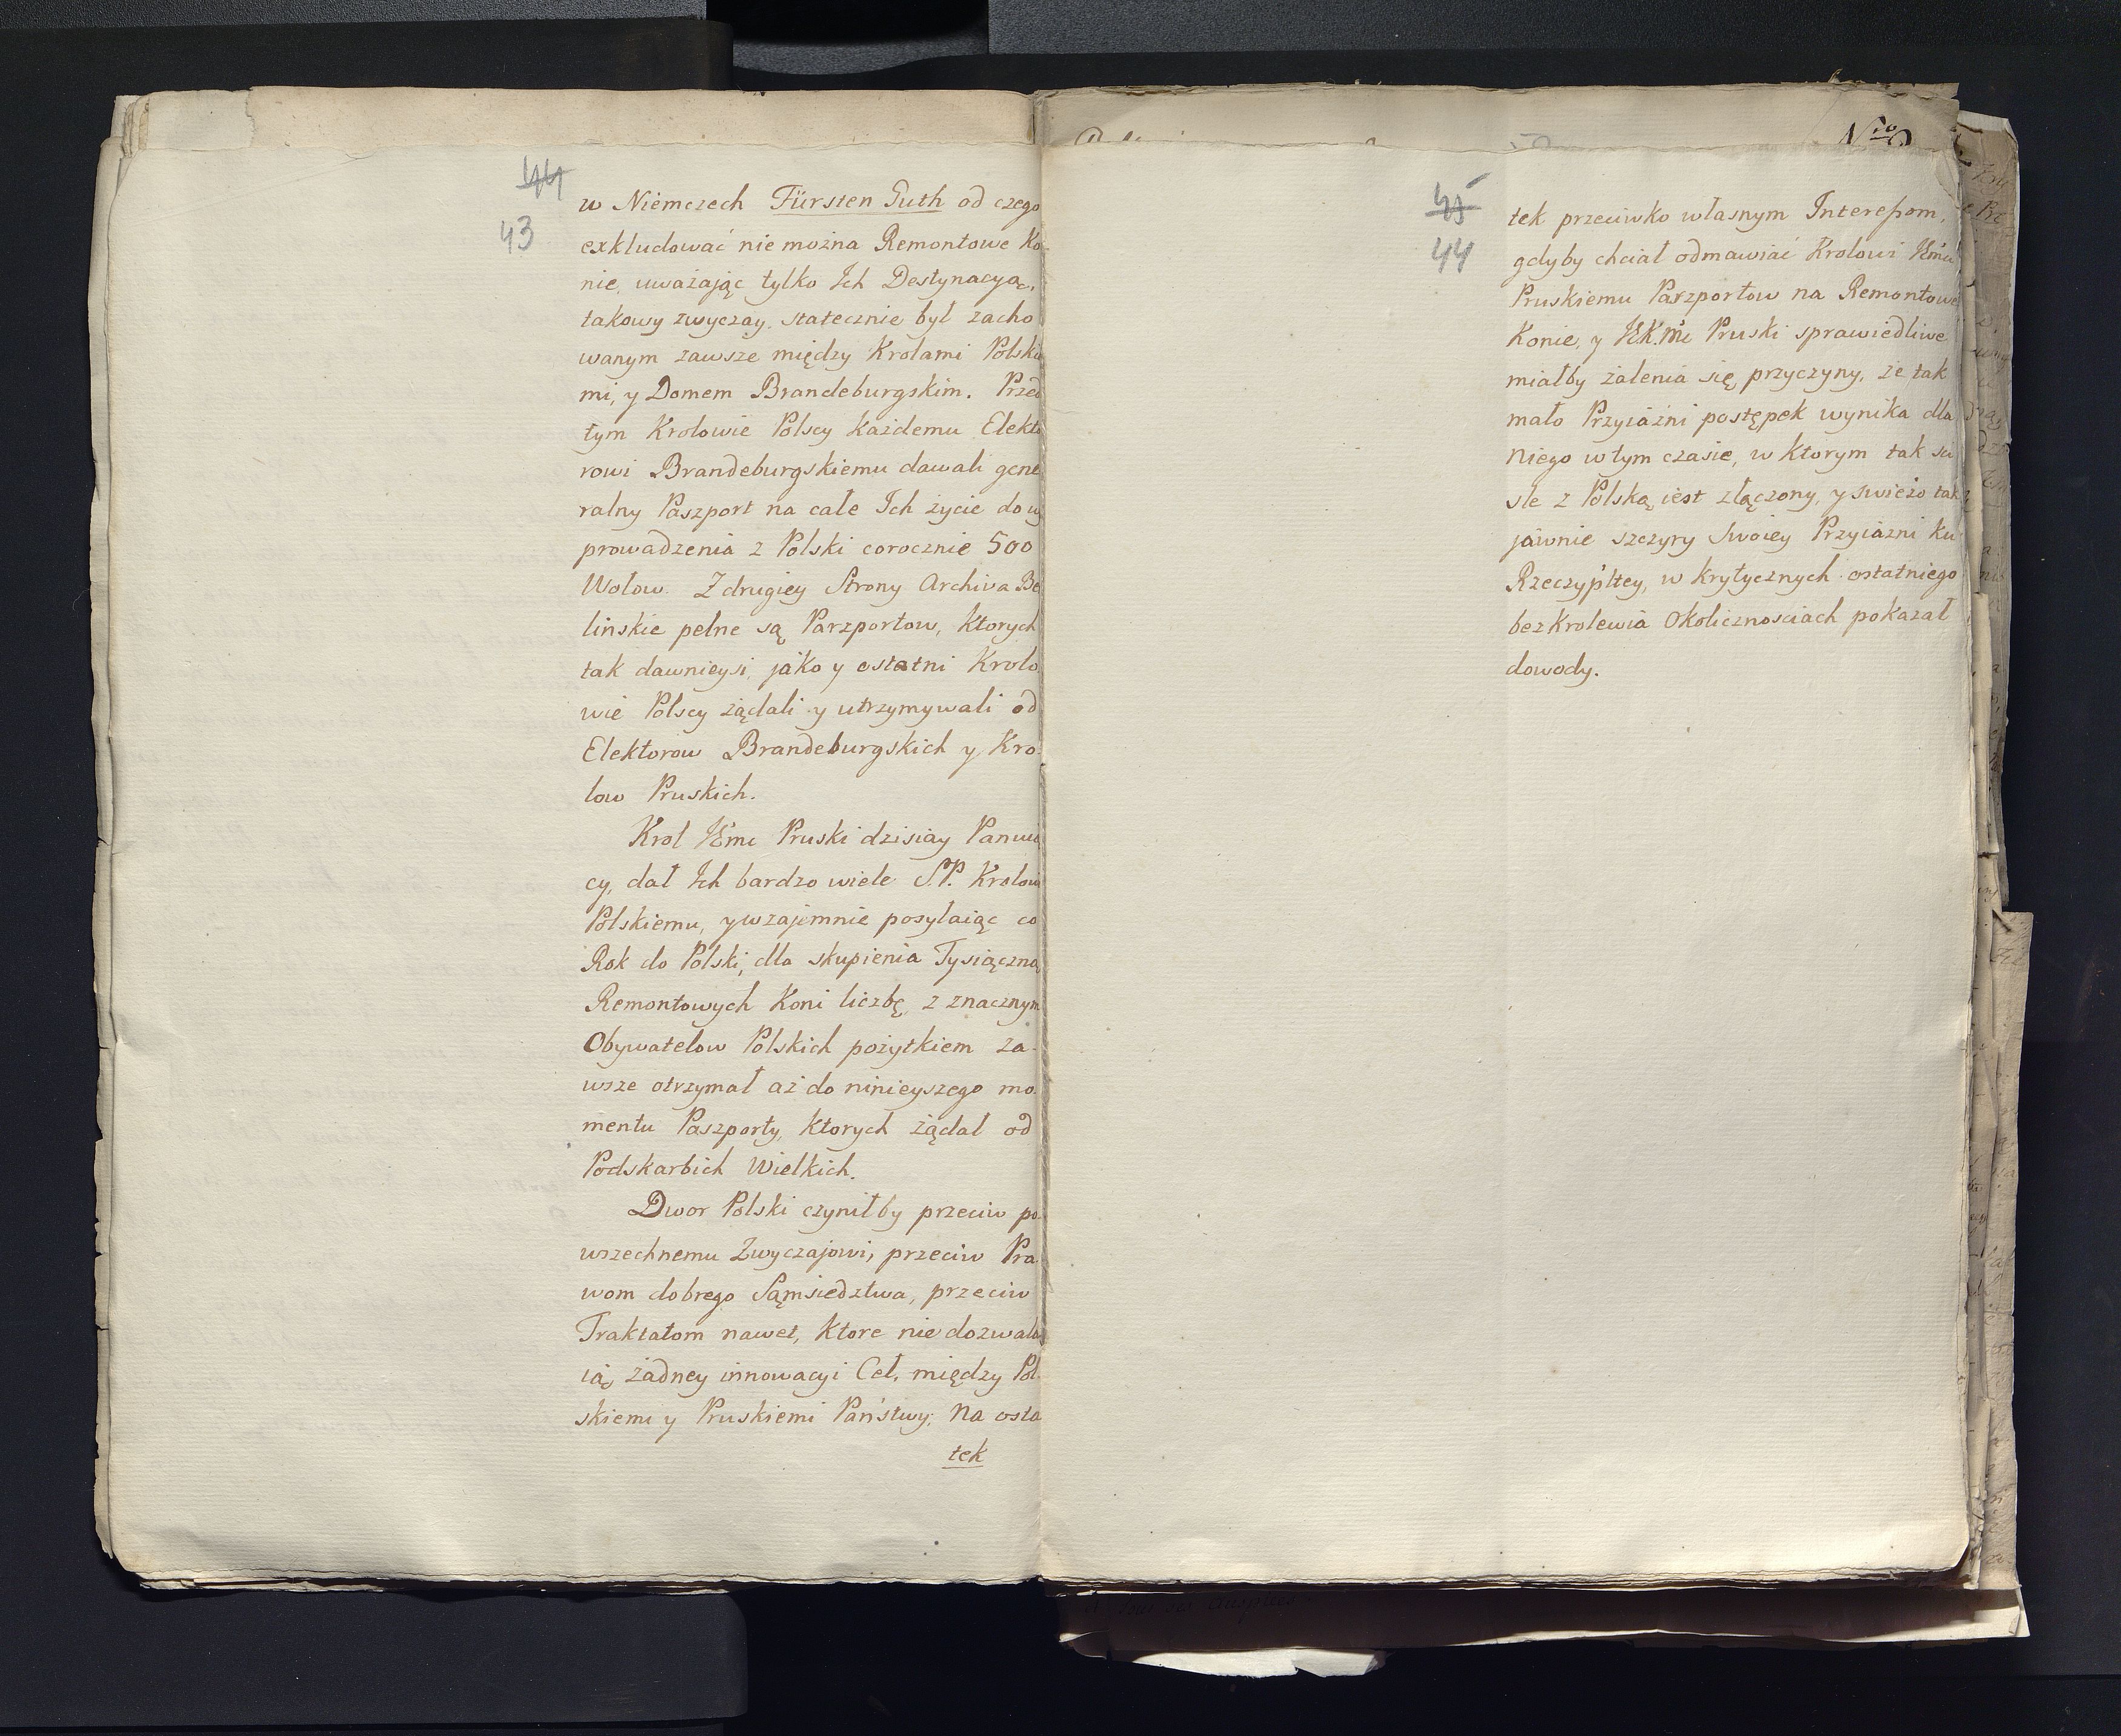 44
43
w Niemczech Fürsten Guth od czego
exkludować nie można Remontowe Ko-
nie, uważając tylko Ich Destynacyą,
takowy zwyczay statecznie był zacho
wanym zawsze między Krolami Polski
mi, y Domem Brandeburgskim. Przed
tym Krolowie Polscy Każdemu Elekto
rowi Brandeburgskiemu dawali gene
ralny Paszport na całe Ich życie do wy
prowadzenia z Polski corocznie 500
Wołow. Z drugiey Strony Archiva Be
linskie pełne są Parzportow, Ktorych
tak dawnieysi, jako y ostatni Krolo
wie Polscy żądali y utrzymywali od
Elektorow Brandeburgskich y Kro-
low Pruskich.
Krol JEmc Pruski dzisiay Panuią
cy, dał Ich bardzo wiele S.P. Krolowi
Polskiemu, y wzajemnie posyłaiąc co
Rok do Polski, dla skupienia Tysiączną
Remontowych Koni liczbę, z znacznym
Obywatelow Polskich pożytkiem za-
wsze otrzymał aż do ninieyszego mo-
mentu Paszporty, Ktorych żądał od
Podskarbich Wielkich.
Dwor Polski czyniłby przeciw po-
wszechnemu Zwyczajowi, przeciw Pra-
wom dobrego Sąmsiedztwa, przeciw
Traktatom nawet, Ktore nie dozwala
ią żadney innowacyi Ceł, między Pol-
skiemi y Pruskiemi Państwy; na osta
tek
45
44
tek przeciwko własnym Interessom,
gdyby chciał odmawiać Krolowi JEmci
Pruskiemu Parzportow na Remontowe
Konie, y JEK.Mc Pruski sprawiedliwe
miałby żalenia się przyczyny, że tak
mało Przyiaźni postępek wynika dla
Niego w tym czasie, w Ktorym tak sci
sle z Polską iest złączony, y swieżo tak
jawnie szczyry Swoiey Przyiaźni Ku
Rzeczypltey, w Krytycznych ostatniego
bezKrolewia Okolicznosciach pokazał
dowody.